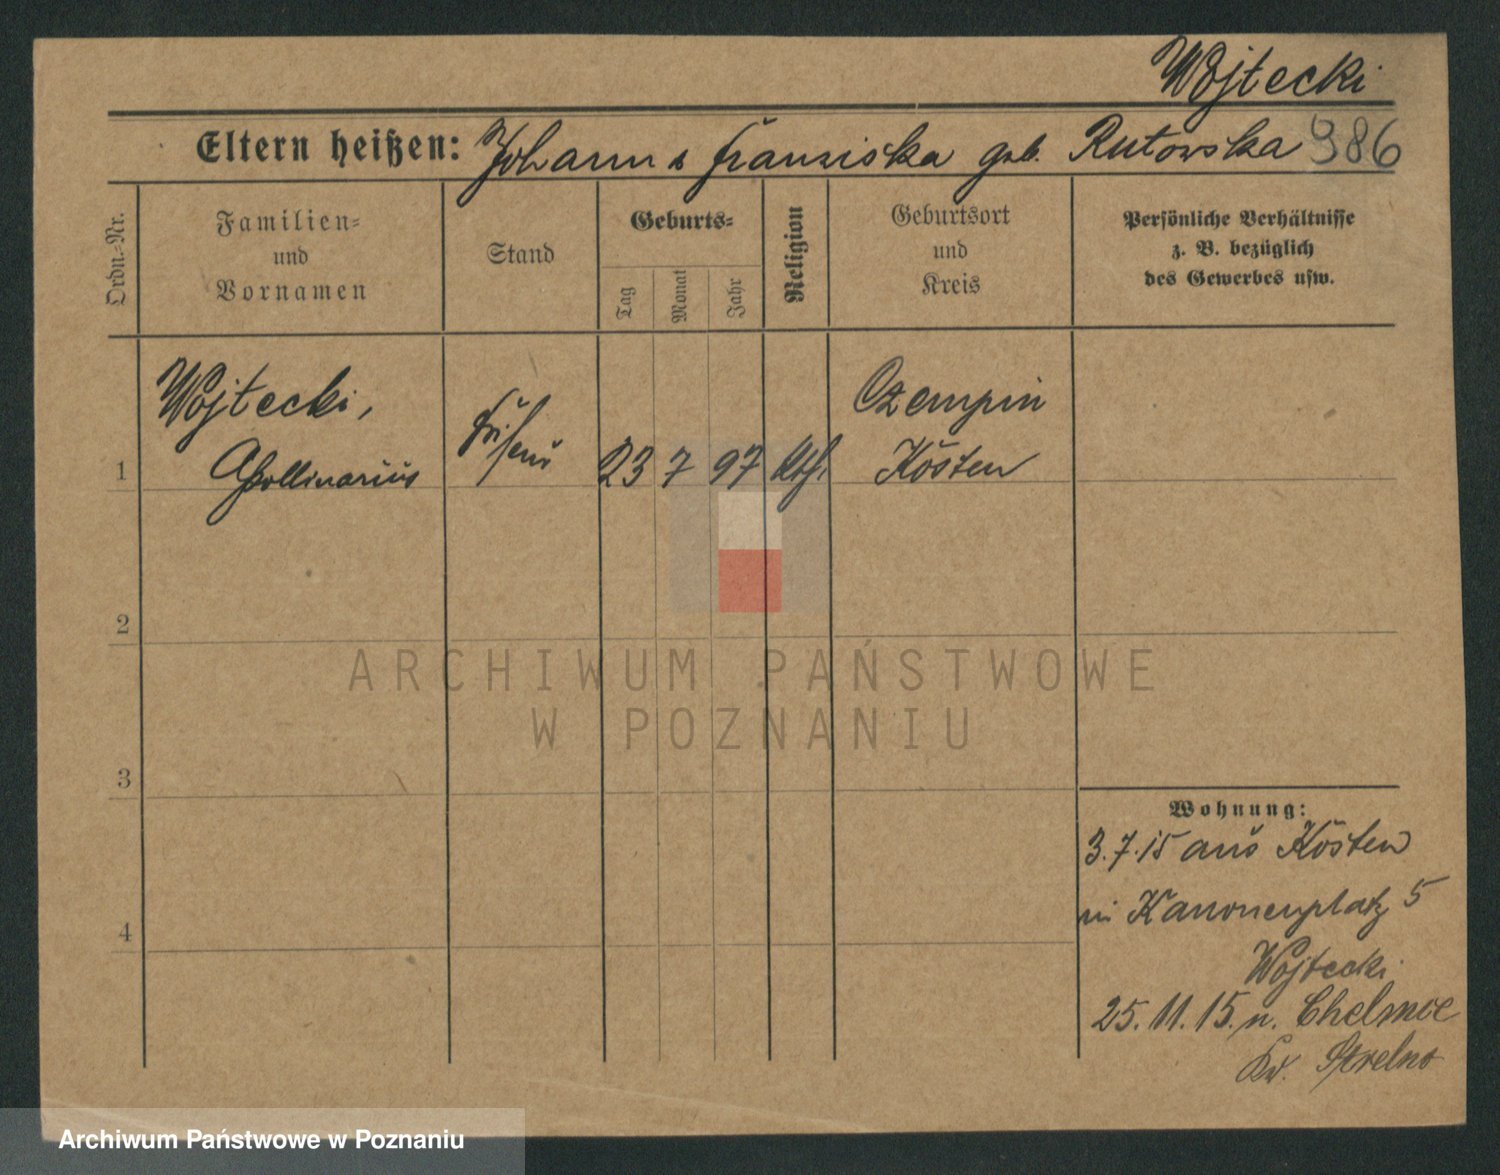 Wojtecki
Eltern heißen: Johann & Franziska geb. Rutowska 986
Ordn.-Nr.
Familien-
und
Vornamen
Stand
Geburts-
Tag
Monat
Jahr
Religion
Geburtsort
und
Kreis
Persönliche Verhältnisse
z. B. bezüglich
des Gewerbes usw.
1
Wojtecki,
Apollinarius
23 7 97 kth.
Czempin
Kosten
2
3
4
Wohnung:
3.7.15 aus Kosten
Kanonenplatz 5
Wojtecki
25.11.15. n. Chelmce
Kr. Strelno
ARCHIWUM PAŃSTWOWE
W POZNANIU
Archiwum Państwowe w Poznaniu